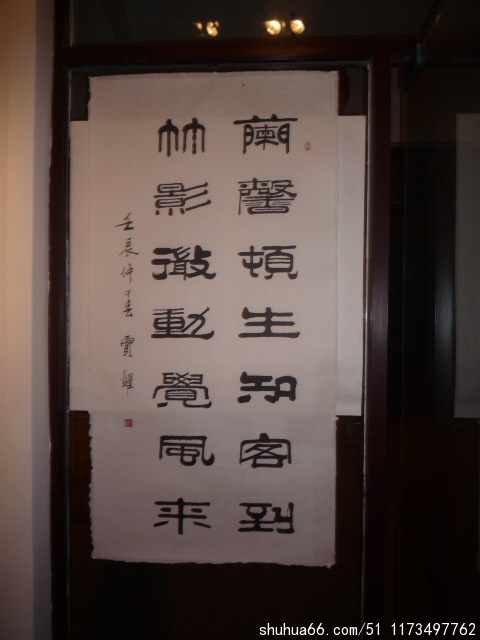 蘭馨頓生知客到
竹影微動覺風来
壬辰仲春
shuhua66.com/51 1173497762